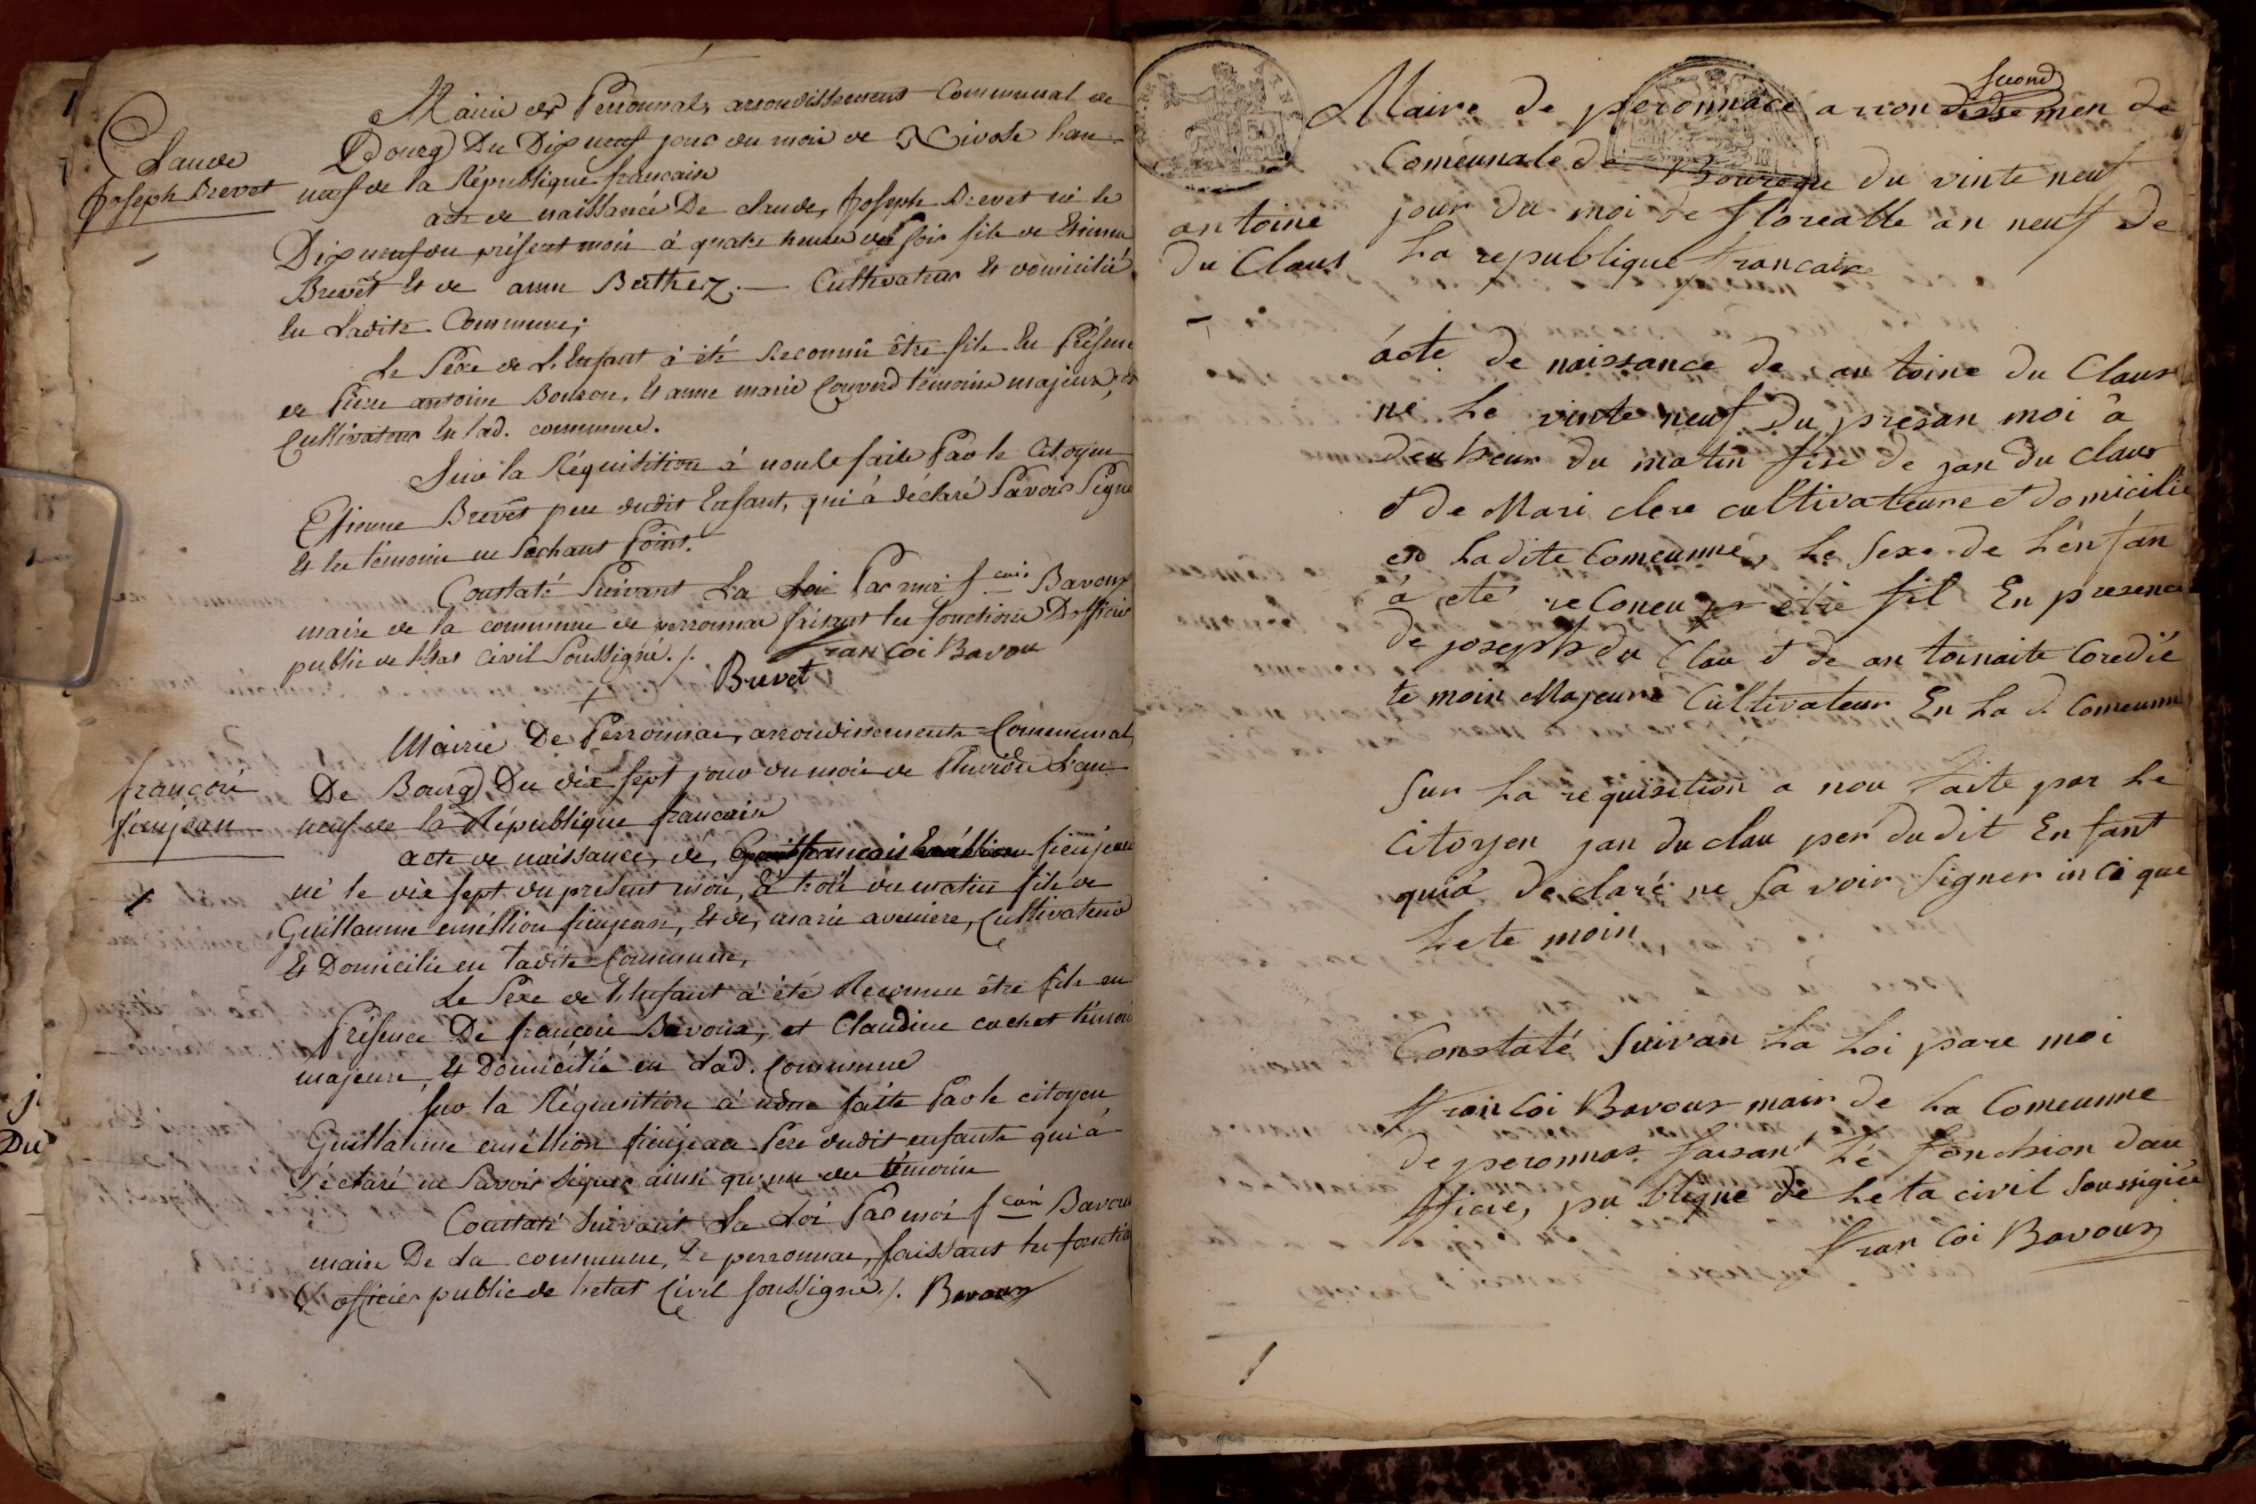 Mairie de Perronnas, arrondissement Communal de
Bourg Du Dix neuf jour du mois de Nivose l'an
Claude
Joseph Brevet
neuf de la République francaise
acte de naissance De Claude, Joseph Brevet né le
Dix neuf du présent mois à quatre heures du soir fils de Etienne
Brevet Et de anne Bethez. — Cultivateur Et domicilié
En Ladite Commune;
Le Sexe de L'Enfant à été Reconnu être fils En Présence
de Pierre antoine Bouson, Et anne marie Couverd témoins majeurs,
Cultivateur En Lad. commune.
Sur la Réquisition à nous faite Par le Citoyen
Etienne Brevet pere dudit Enfant, qui à déclaré Savoir Signe
Et les témoins ne Sachant Point.
Constaté Suivant La Loi Par moi f.cois Bavoux
maire de la commune de perronnas faisant les fonctions D'officier
public de l'Etat Civil Soussigné ./.
francoi Bavou
Brevet
Mairie De Perronnas, arrondissements Communal
De Bourg Du dix sept jour du mois de Pluviôse L'an
françois
fieujean
neuf de la République francaise
acte de naissance, de, françois fieujean
né le dix sept du present mois, à trois du matin fils de
Guillaume eméllion fieujean, Et de, marie aveniere, Cultivateurs
Et Domicilié en ladite Commune,
Le Sexe de L'Enfant à été Reconnu être fils en
Présence De françois Bavoux, et Claudine cochet témoin
majeurs, Et Domicilié en Lad. Commune
Sur la Réquisition à nous faite Par le citoyen
Guillaume eméllion fieujean Pere dudit enfants qui à
déclaré ne Savoir Signer ainsi que les témoins
Constaté Suivant La Loi Par moi f.cois Bavoux
maire De La commune, De perronnas, faissant les fonction
D'officier public de l'etat Civil Soussigné ./. Bavoux
second
Maire de peronnace arron dissemen de
Comeunale de Boureque du vinte neuf
an toine
du Claus
jour du moi de floréalle an neuf de
La republique francaise
acte de naissance de an toine du Claus
ne Le vinte neuf du presan moi à
deu heur du matin fise de jan du claus
et de Mari clere cultivateure et domicilie
en Ladite Comeunne, Le Sexe de L'enfan
à eté reConeu etre fil En presence
de joseph du Clau et de an toinaite Coredié
te moin Majeure Cultivateur En La d Comeunne
Sur La requisition a nou faite par Le
Citoyen jan du clau per dudit Enfant
qui à declaré ne Savoir Signer in ci que
Le te moin
Constaté Suivan La Loi pare moi
fran Coi Bavoux mair de La Comeunne
de peronnas faisan Lé fonchion dau
ficie, pu blique de Le ta civil Soussigiée
fran Coi Bavoux